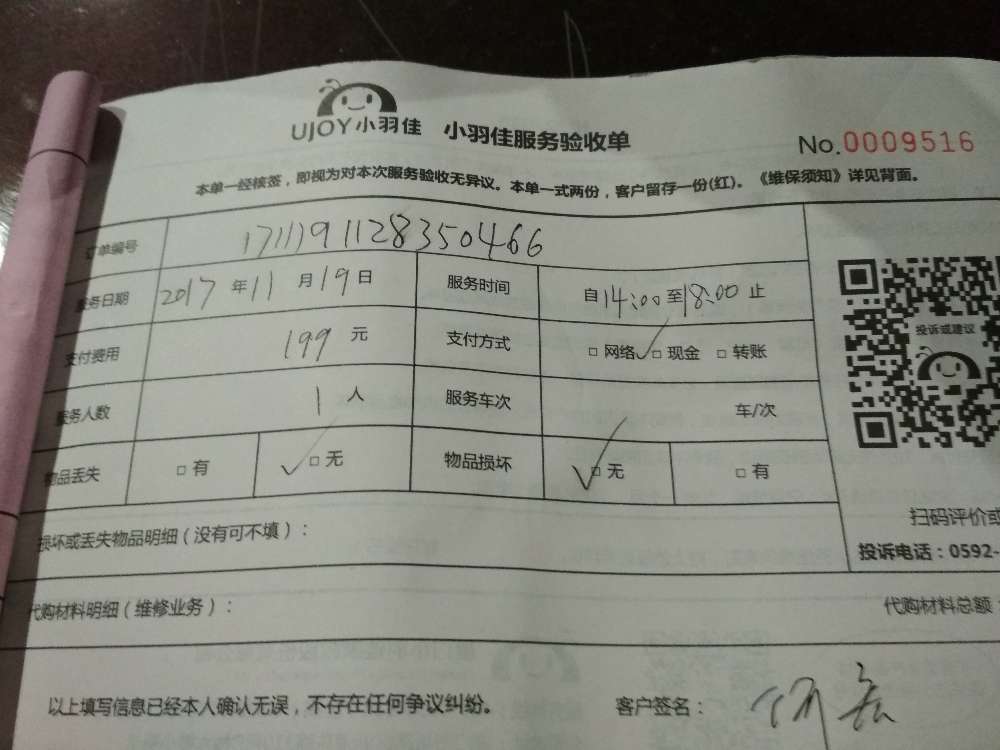 UJOY小羽佳 小羽佳服务验收单 No.0009516
本单一经核签，即视为对本次服务验收无异议。本单一式两份，客户留存一份(红)。《维保须知》详见背面。
订单编号 1711191128350466
服务日期 2017年11月19日 服务时间 自14:00至18:00止
支付费用 199元 支付方式 □网络✓□现金 □转账
投诉或建议
服务人数 1人 服务车次 车/次
物品丢失 □有 ✓□无 物品损坏 ✓□无 □有
扫码评价或
损坏或丢失物品明细（没有可不填）：
投诉电话：0592-
代购材料明细（维修业务）： 代购材料总额：
以上填写信息已经本人确认无误，不存在任何争议纠纷。 客户签名：